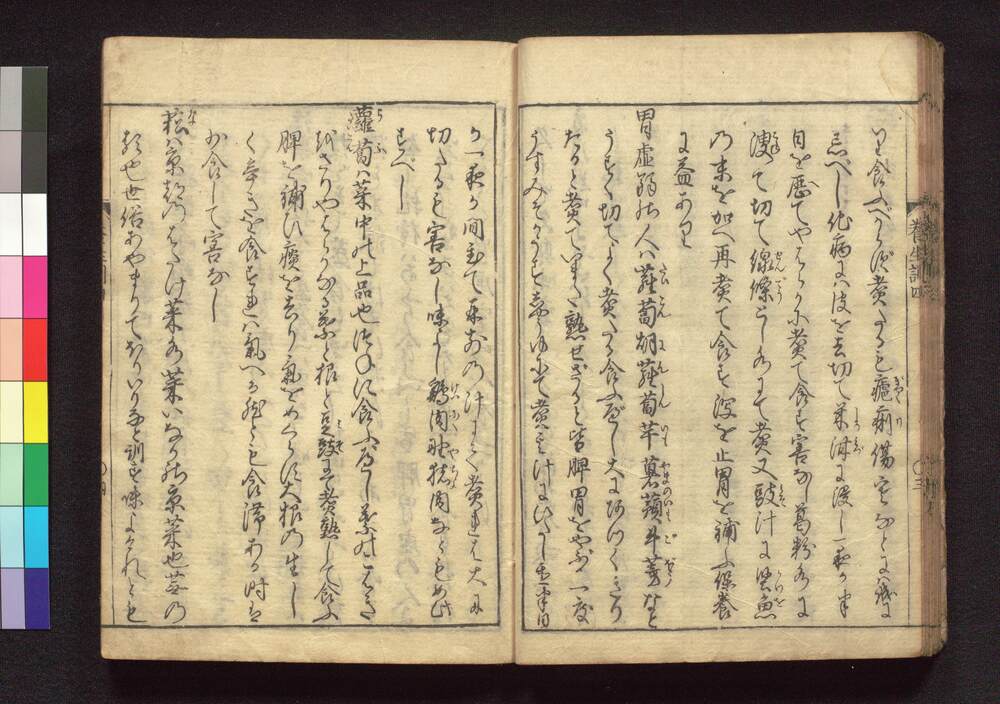 いり食ふべからず煮たるも瘧痢傷寒などには
忌べし他病には皮を去切て米泔に浸し一夜か半
日を歴てやはらかに煮て食す害なし葛粉水に
溲て切て線條とし水にて煮又豉汁に鰹魚
の末を加へ再煮て食す瀉を止胃を補ふ保養
に益あり
胃虚弱の人は蘿蔔胡蘿蔔芋薯蕷牛蒡など
うすく切てよく煮たる食ふべし大にあつくきり
たると煮ていまだ熟せざると皆脾胃をやぶる一度
うすみそかうすじやうゆにて煮其汁にひたし置半日
か一夜か間置て再前の汁にて煮れば大に
切たるも害なし味よし鶏肉野猪肉などもかくの如く
すべし
蘿蔔は菜中の上品也つねに食ふべし葉のこはきを
さりやはらかなる葉と根と豆豉にて煮熟して食ふ
脾を補ひ痰を去り氣をめぐらす大根の生し
く辛きを食すれば氣へる然ども食滞ある時
少食して害なし
菘は京都のはたけ菜水菜いなかの京菜也蕪の
類也世俗あやまりてほりいりなと訓ず味よけれども
養生訓四
〇三
〇四